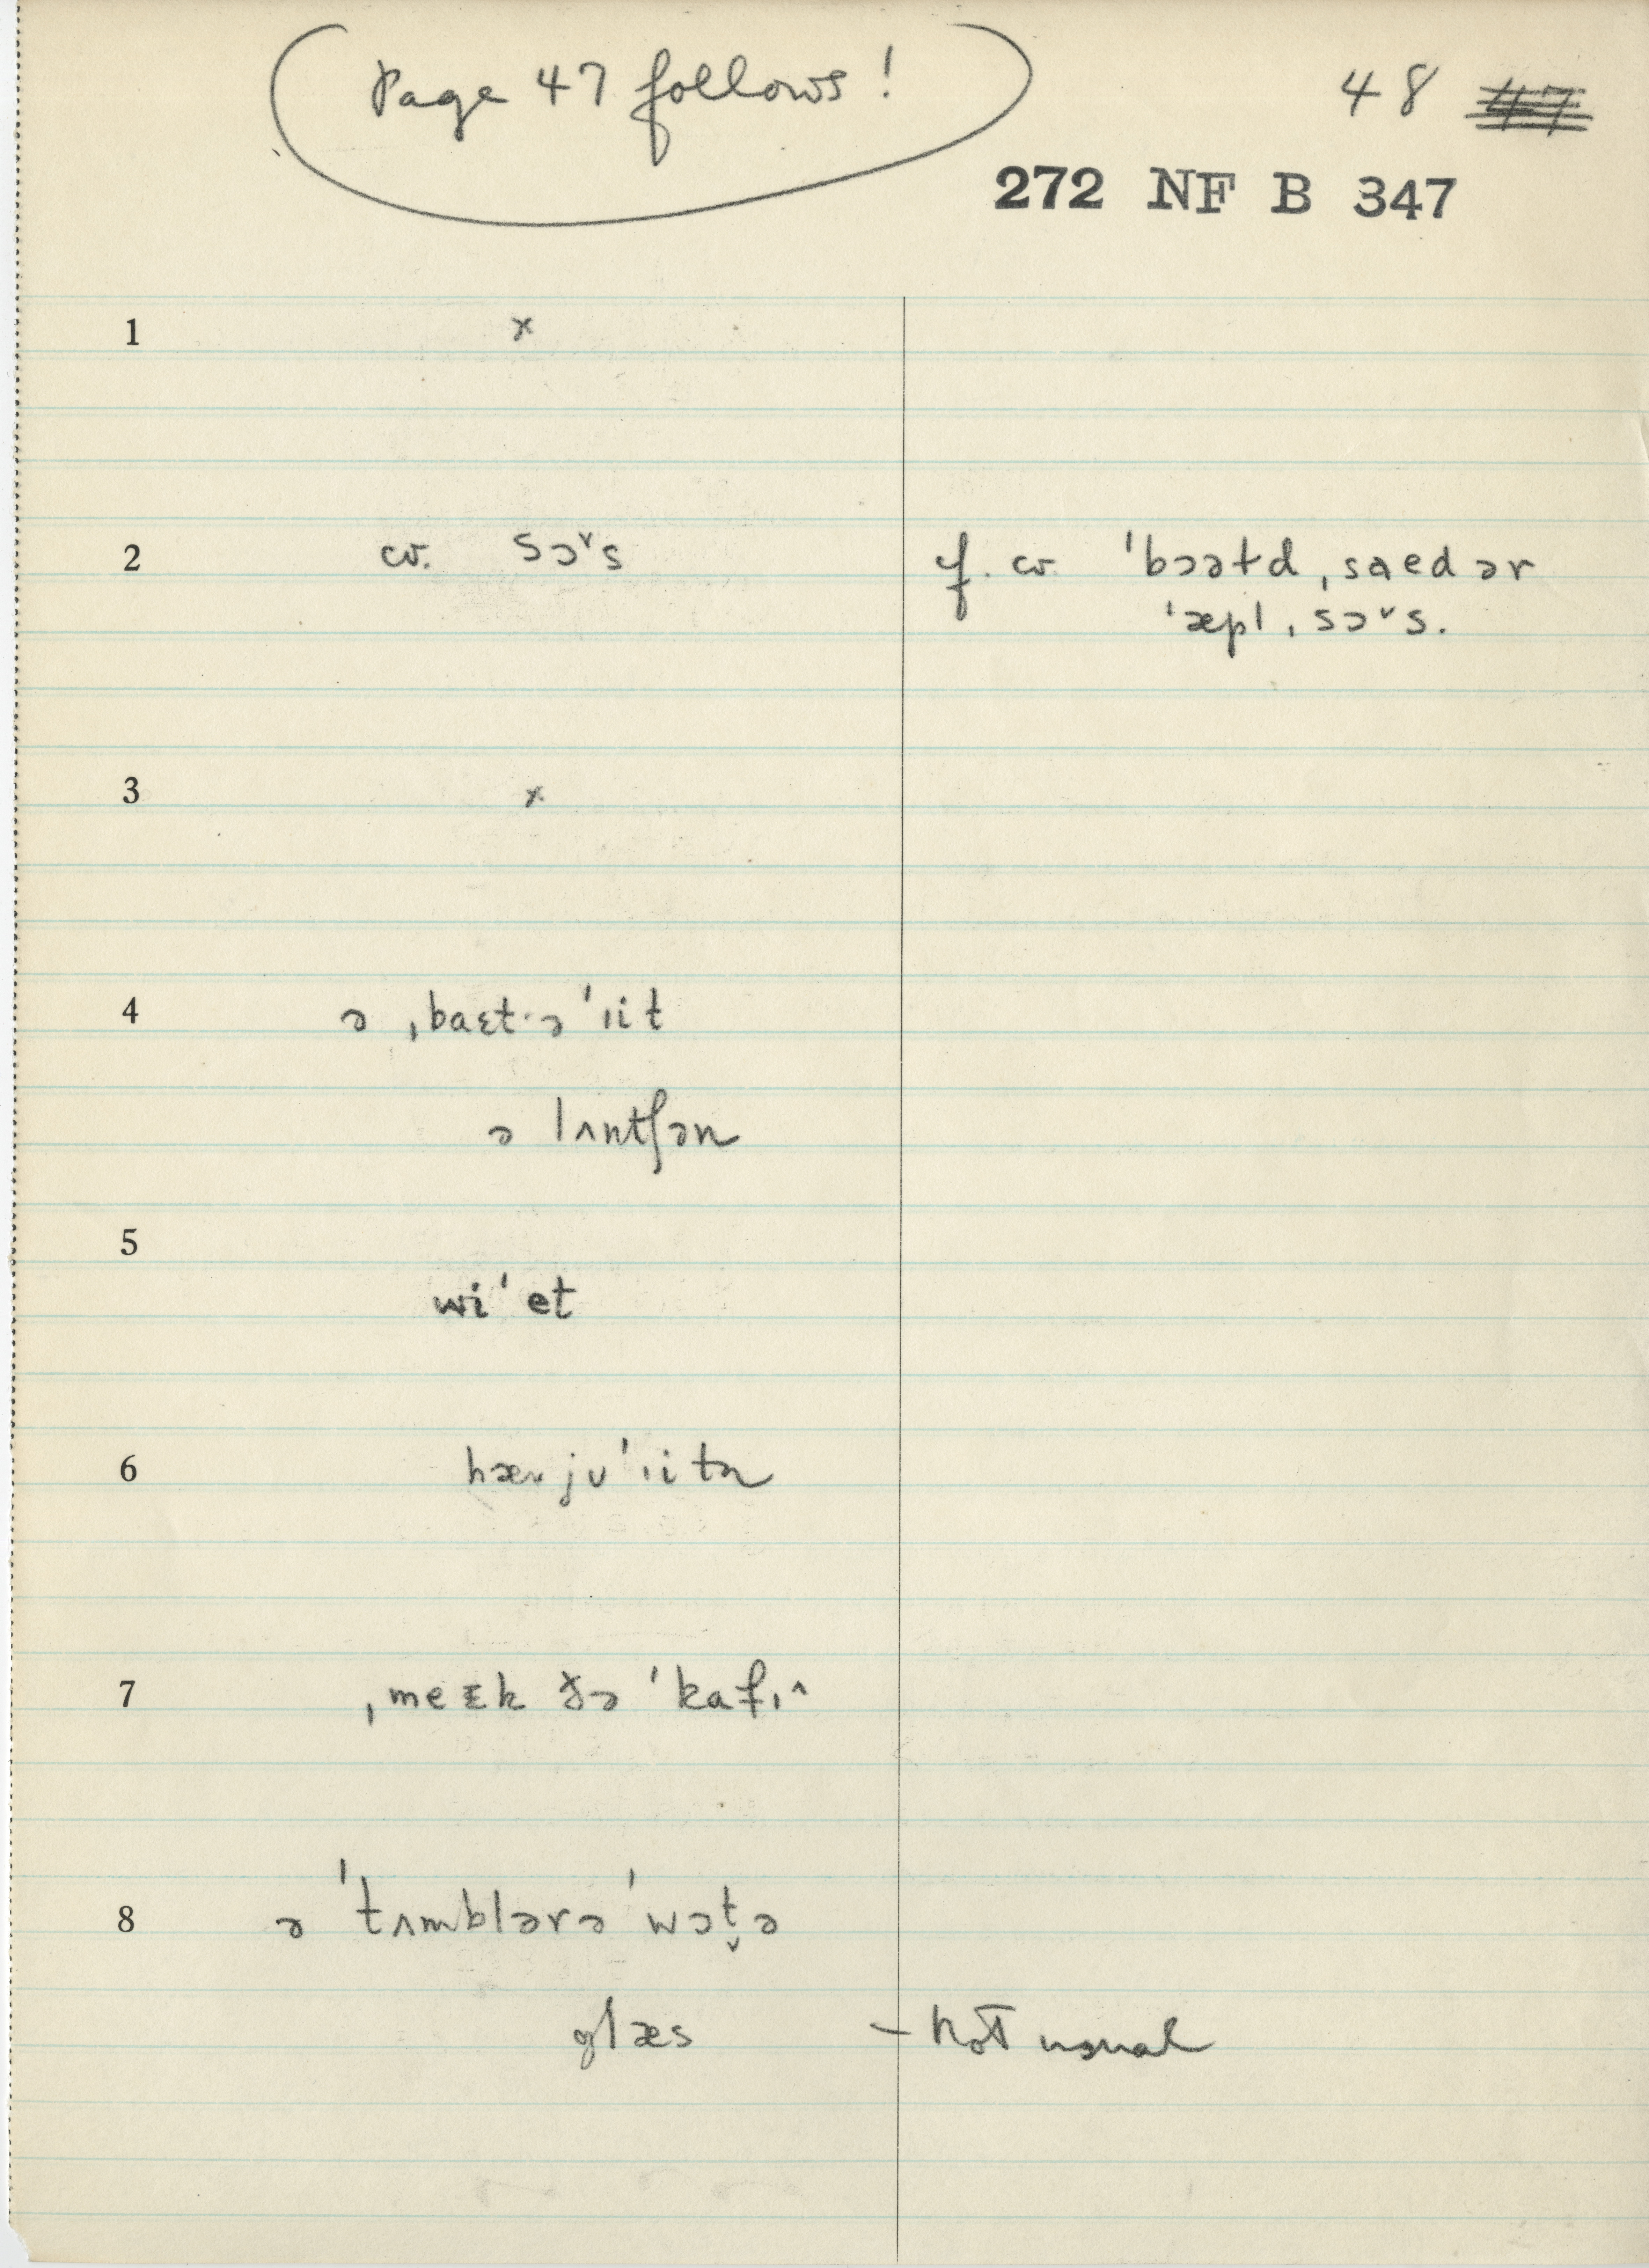 Page 47 follows!
48 47
272 NF B 347
1 x
2 cv. sɔ˅s f. cv ˈbɔətd ˌsaedər
ˈæpl ˌsɔ˅s.
3 x
4 ə ˌbaɛt·əˈɪit
ə lʌntʃən
5
wiˈet
6 hæv juˈɪitn
7 ˌmeɛk ðə ˈkafɪ^
8 ə ˈtʌmblərəˈwɔt̬ə
glæs – not usual